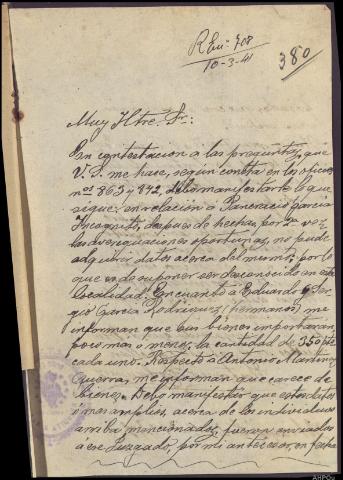 R Eu-708
10-3-41
380
Muy Iltre. Sr.:
En contestación a las preguntas, que
V. S. me hace, según consta en los oficios
nos 863 y 842, debo manifestarle lo que
sigue: en relación a Pancracio García
Incógnito, después de hechas, por 2ª vez
las averiguaciones oportunas, no pude
adquirir datos acerca del mismo, por lo
que es de suponer ser desconocido en esta
localidad. En cuanto a Eduardo y Ser-
gio García Rodríguez (hermanos) me
informan que sus bienes importaran
poco mas o menos la cantidad de 350 pts
cada uno. Respecto a Antonio Martínez
Guerra, me informan que carece de
bienes. Debo manifestar que estos datos
o mas amplios, acerca de los individuos
arriba mencionados, fueron enviados
a ese Juzgado, por mi antecesor, en fecha
AHPOu